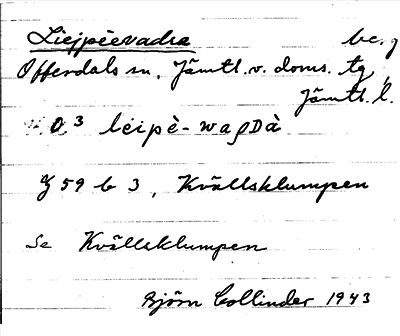 Liejpèevadra be. g
Offerdals sn, Jämtl. v. doms. tg
Jämtl. l.
O³ leipè-waρDà
Y 59 b 3, Kvällsklumpen
Se Kvällsklumpen
Björn Collinder 1943